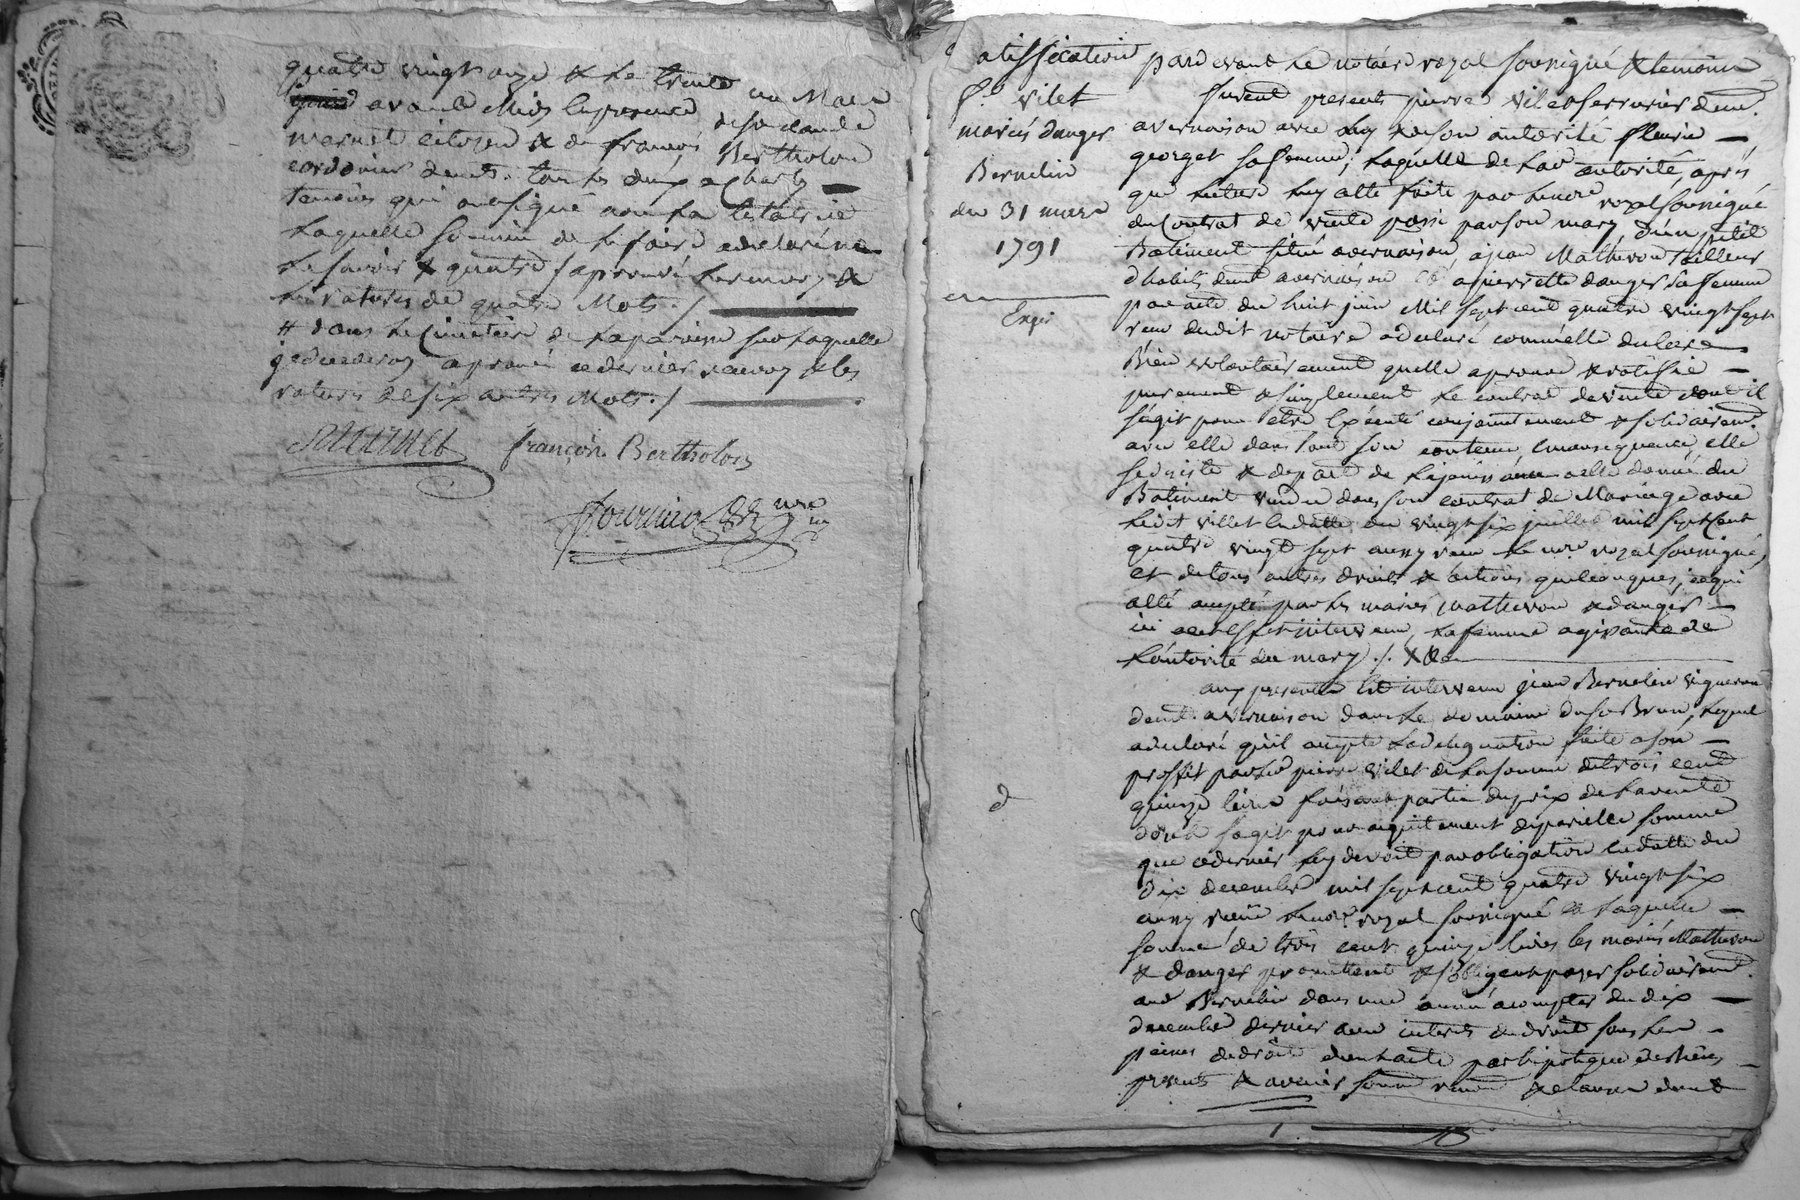 quatre vingt onze & le trente un Mars
avant Midy en presence de sr claude
mermet citoyen & de françois Bertholon
cordonier demt. tous les deux a Charly
temoins qui ont signé non la testatrice
laquelle sommée de le faire a declaré ne
le savoir & quatre / approuvé le renvoy &
les ratures de quatre Mots ./
# dans le Cimetière de la paroisse sur laquelle
je decederay approuvé ce dernier renvoy & les
ratures de six autres Mots ./
françois Bertholon
ratiffication
pr. vilet
mariés danger
Bernelin
du 31 mars
1791
Expié
pardevant le notaire royal soussigné & temoins
furent presents pierre vilet serrurier demt.
a vernaison avec luy de son autorité fleurie
georget sa femme; laquelle de lad autorité, après
que lecture luy a été faite par le nore royal soussigné
du Contrat de vente passé par son mary d'un petit
Batiment situé a vernaison, a jean Mathevon tailleur
d'habits demt a vernaison et a pierrette danger sa femme
par acte du huit juin Mil sept cent quatre vingt sept
reçu dudit notaire a declaré comme elle declare
Bien volontairement quelle aprouve & ratifie
purement & simplement le contrat de vente dont il
s'agit pour etre Exécuté conjointement & solidairemt.
avec elle dans tout son contenu, en consequence elle
se desiste & depart de
Batiment vendu dans son contrat de Mariage avec
ledit villet en datte du vingt six juillet mil sept cent
quatre vingt sept aussy reçu le nore royal soussigné,
et de tous autres droits & actions quelconques, ce qui
a été accepté par les mariés mathevon & danger
ici a cet effet intervenus, la femme agissante de
l'autorité du mary ./.
aux presentes est intervenu jean Bernelin vigneron
demt. a vernaison dans le domaine du sr Brun, lequel
a declaré qu'il accepte la delegation faite a son
proffit par led pierre vilet de la somme de trois cent
quinze livres faisant partie du prix de la vente
dont s'agit pour acquitement de pareille somme
que ce dernier luy devoit par obligation en datte du
dix decembre mil sept cent quatre vingt six
aussy reçüe le nore royal soussigné et laquelle
somme de trois cent quinze livres les mariés Mathevon
& danger promettent & s'obligent payer solidairemt.
aud Bernelin dans une année a compter du dix
decembre dernier avec interets de droit sous les
peines de droit par hipoteque de ses biens
presents & avenir